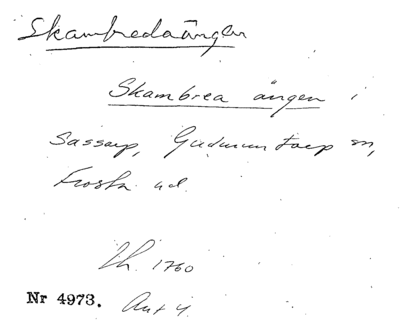 Skambredaängen
Skambrea ängen i
Sassarp, Gudmuntorp sn,
Frosta hd.
Lh. 1760
Nr 4973. Ant 4.